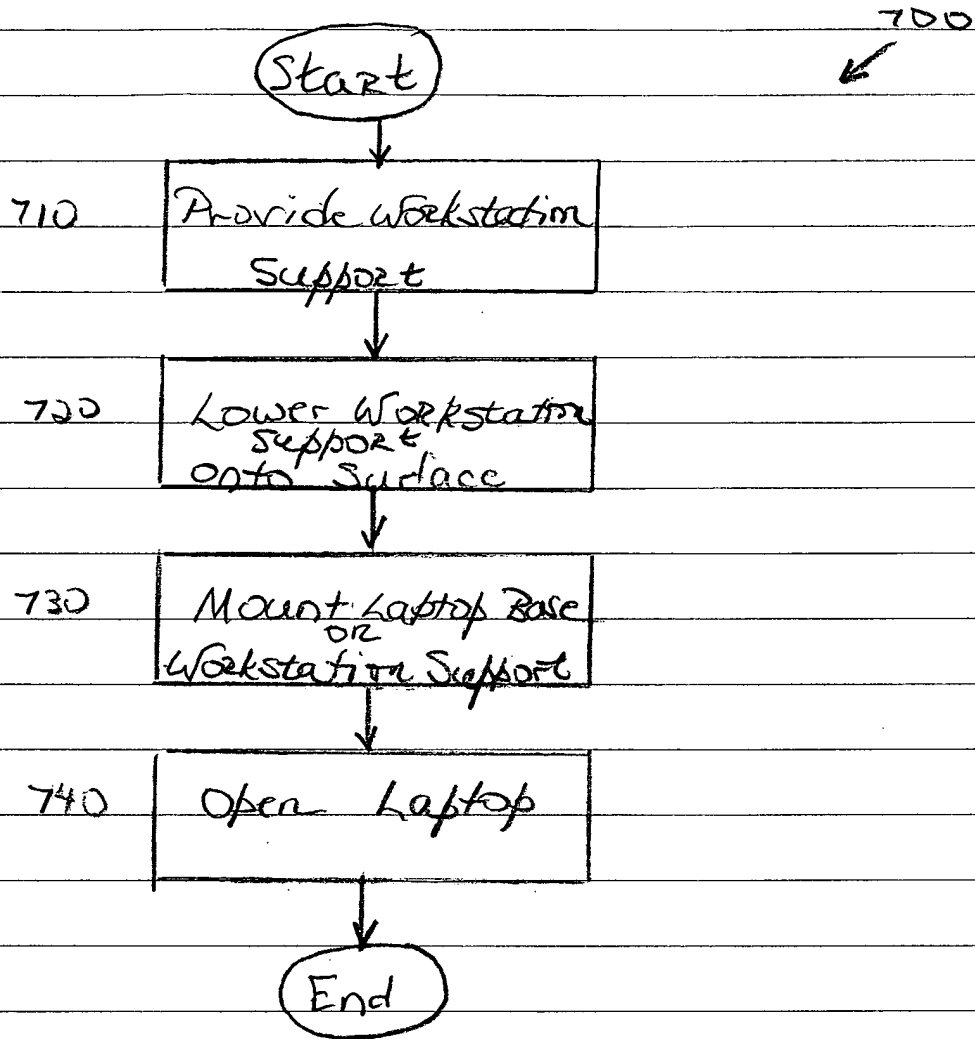 700
Start
710
Provide Workstation
Support
720
Lower Workstation
Support
onto Surface
730
Mount Laptop Base
or
Workstation Support
740
Open Laptop
End